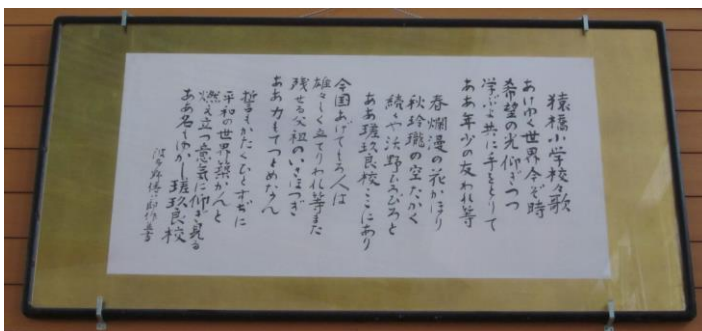 猿橋小学校々歌
あけゆく世界今ぞ時
希望の光仰ぎつつ
学ぶよ共に手をとりて
ああ年少の友われ等
春爛漫の花かほり
秋玲瓏の空たかく
続くや沃野ひろびろと
ああ瑳玖良校ここにあり
今国あげてもろ人は
雄々しく立てりわれ等また
残せる父祖のいさほつぎ
ああ力もてつとめなん
誓もかたくひとすぢに
平和の世界築かんと
燃え立つ意気に仰ぎ見る
ああ名もゆかし瑳玖良校